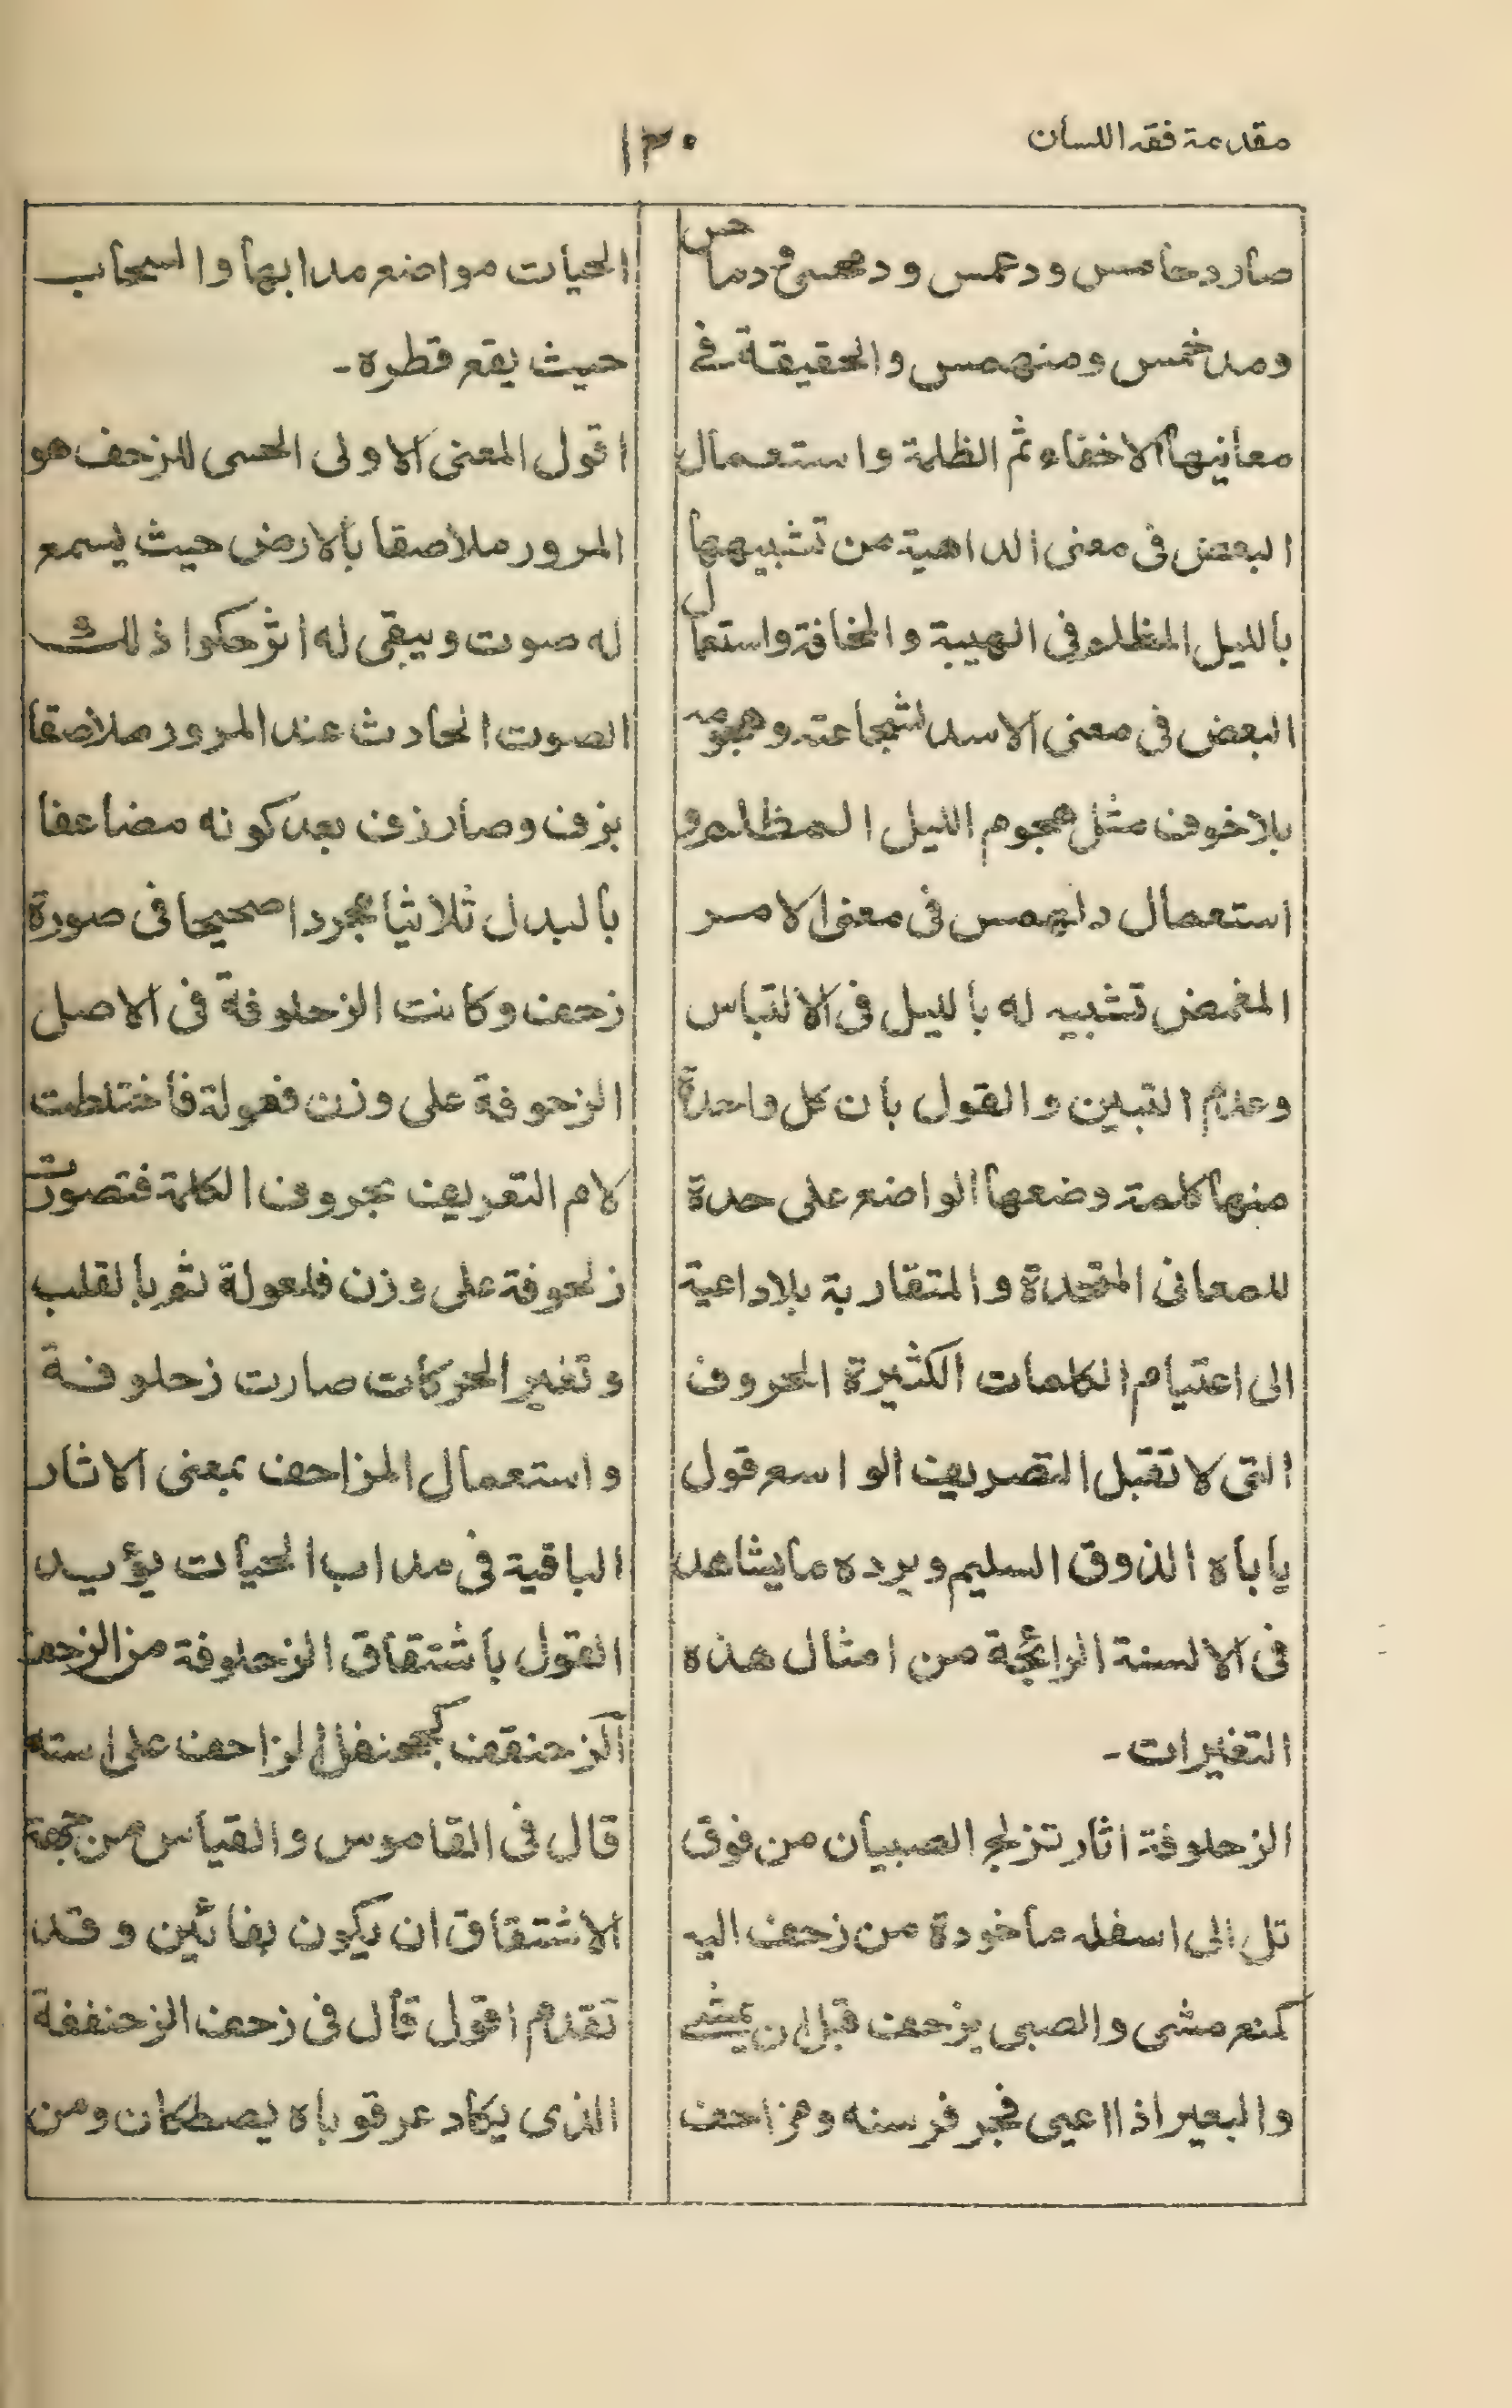 مقدمة فقه اللسان
١٣٠
صار دحامس ودعمس ودمحسى و دماحس
ومدخمس ومنهمس والحقيقة في
معانيها الاخفاء ثم الظلمة واستعمال
البعض فى معنى الداهية من تشبيهها
بالليل المظلم فى الهيبة والمخافة واستعمال
البعض فى معنى الاسد لشجاعته وهجومه
بلا خوف مثل هجوم الليل المظلم و
استعمال دلهمس فى معنى الامر
المغمض تشبيه له بالليل فى الالتباس
وعدم التبين والقول بان كل واحدة
منها كلمة وضعها الواضع على حدة
للمعانى المتحدة والمتقاربة بلا داعية
الى اعتيام الكلمات الكثيرة الحروف
التى لا تقبل التصريف الواسع قول
ياباه الذوق السليم ويرده ما يشاهد
فى الالسنة الرائجة من امثال هذه
التغيرات ۔
الزحلوفة اثار تزلج الصبيان من فوق
تل الى اسفله ماخودة من زحف اليه
كمنع مشى والصبى يزحف قبل ان يمشے
والبعير اذا اعيى فجر فرسنه ومزاحف
الحيات مواضع مدابها والسحاب
حيث يقع قطره ۔
اقول المعنى الاولى الحسى للزحف هو
المرور ملاصقا بالارض حيث يسمع
له صوت ويبقى له اثر حكوا ذلك
الصوت الحادث عند المرور ملاصقا
بزف وصار زف بعد كونه مضاعفا
بالبدل ثلاثيا مجردا صحيحا فى صورة
زحف وكانت الزحلوفة فى الاصل
الزحوفة على وزن فعولة فاختلطت
لام التعريف بحروف الكلمة فتصورت
زلحوفة على وزن فلعولة ثم بالقلب
وتغير الحركات صارت زحلوفة
واستعمال المزاحف بمعنى الاثار
الباقية فى مداب الحيات يؤيد
القول باشتقاق الزحلوفة من الزحف
الزحنقف كجحنفل الزاحف على استه
قال فى القاموس والقياس من جهة
الاشتقاق ان يكون بفائين وقد
تقدم اقول قال فى زحف الزحنففة
الذى يكاد عرقوباه يصطكان ومن